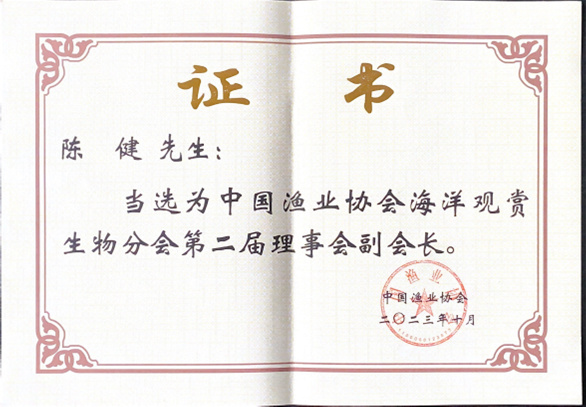 证 书
陈 健 先生：
当选为中国渔业协会海洋观赏
生物分会第二届理事会副会长。
中国渔业协会
二〇二三年十月